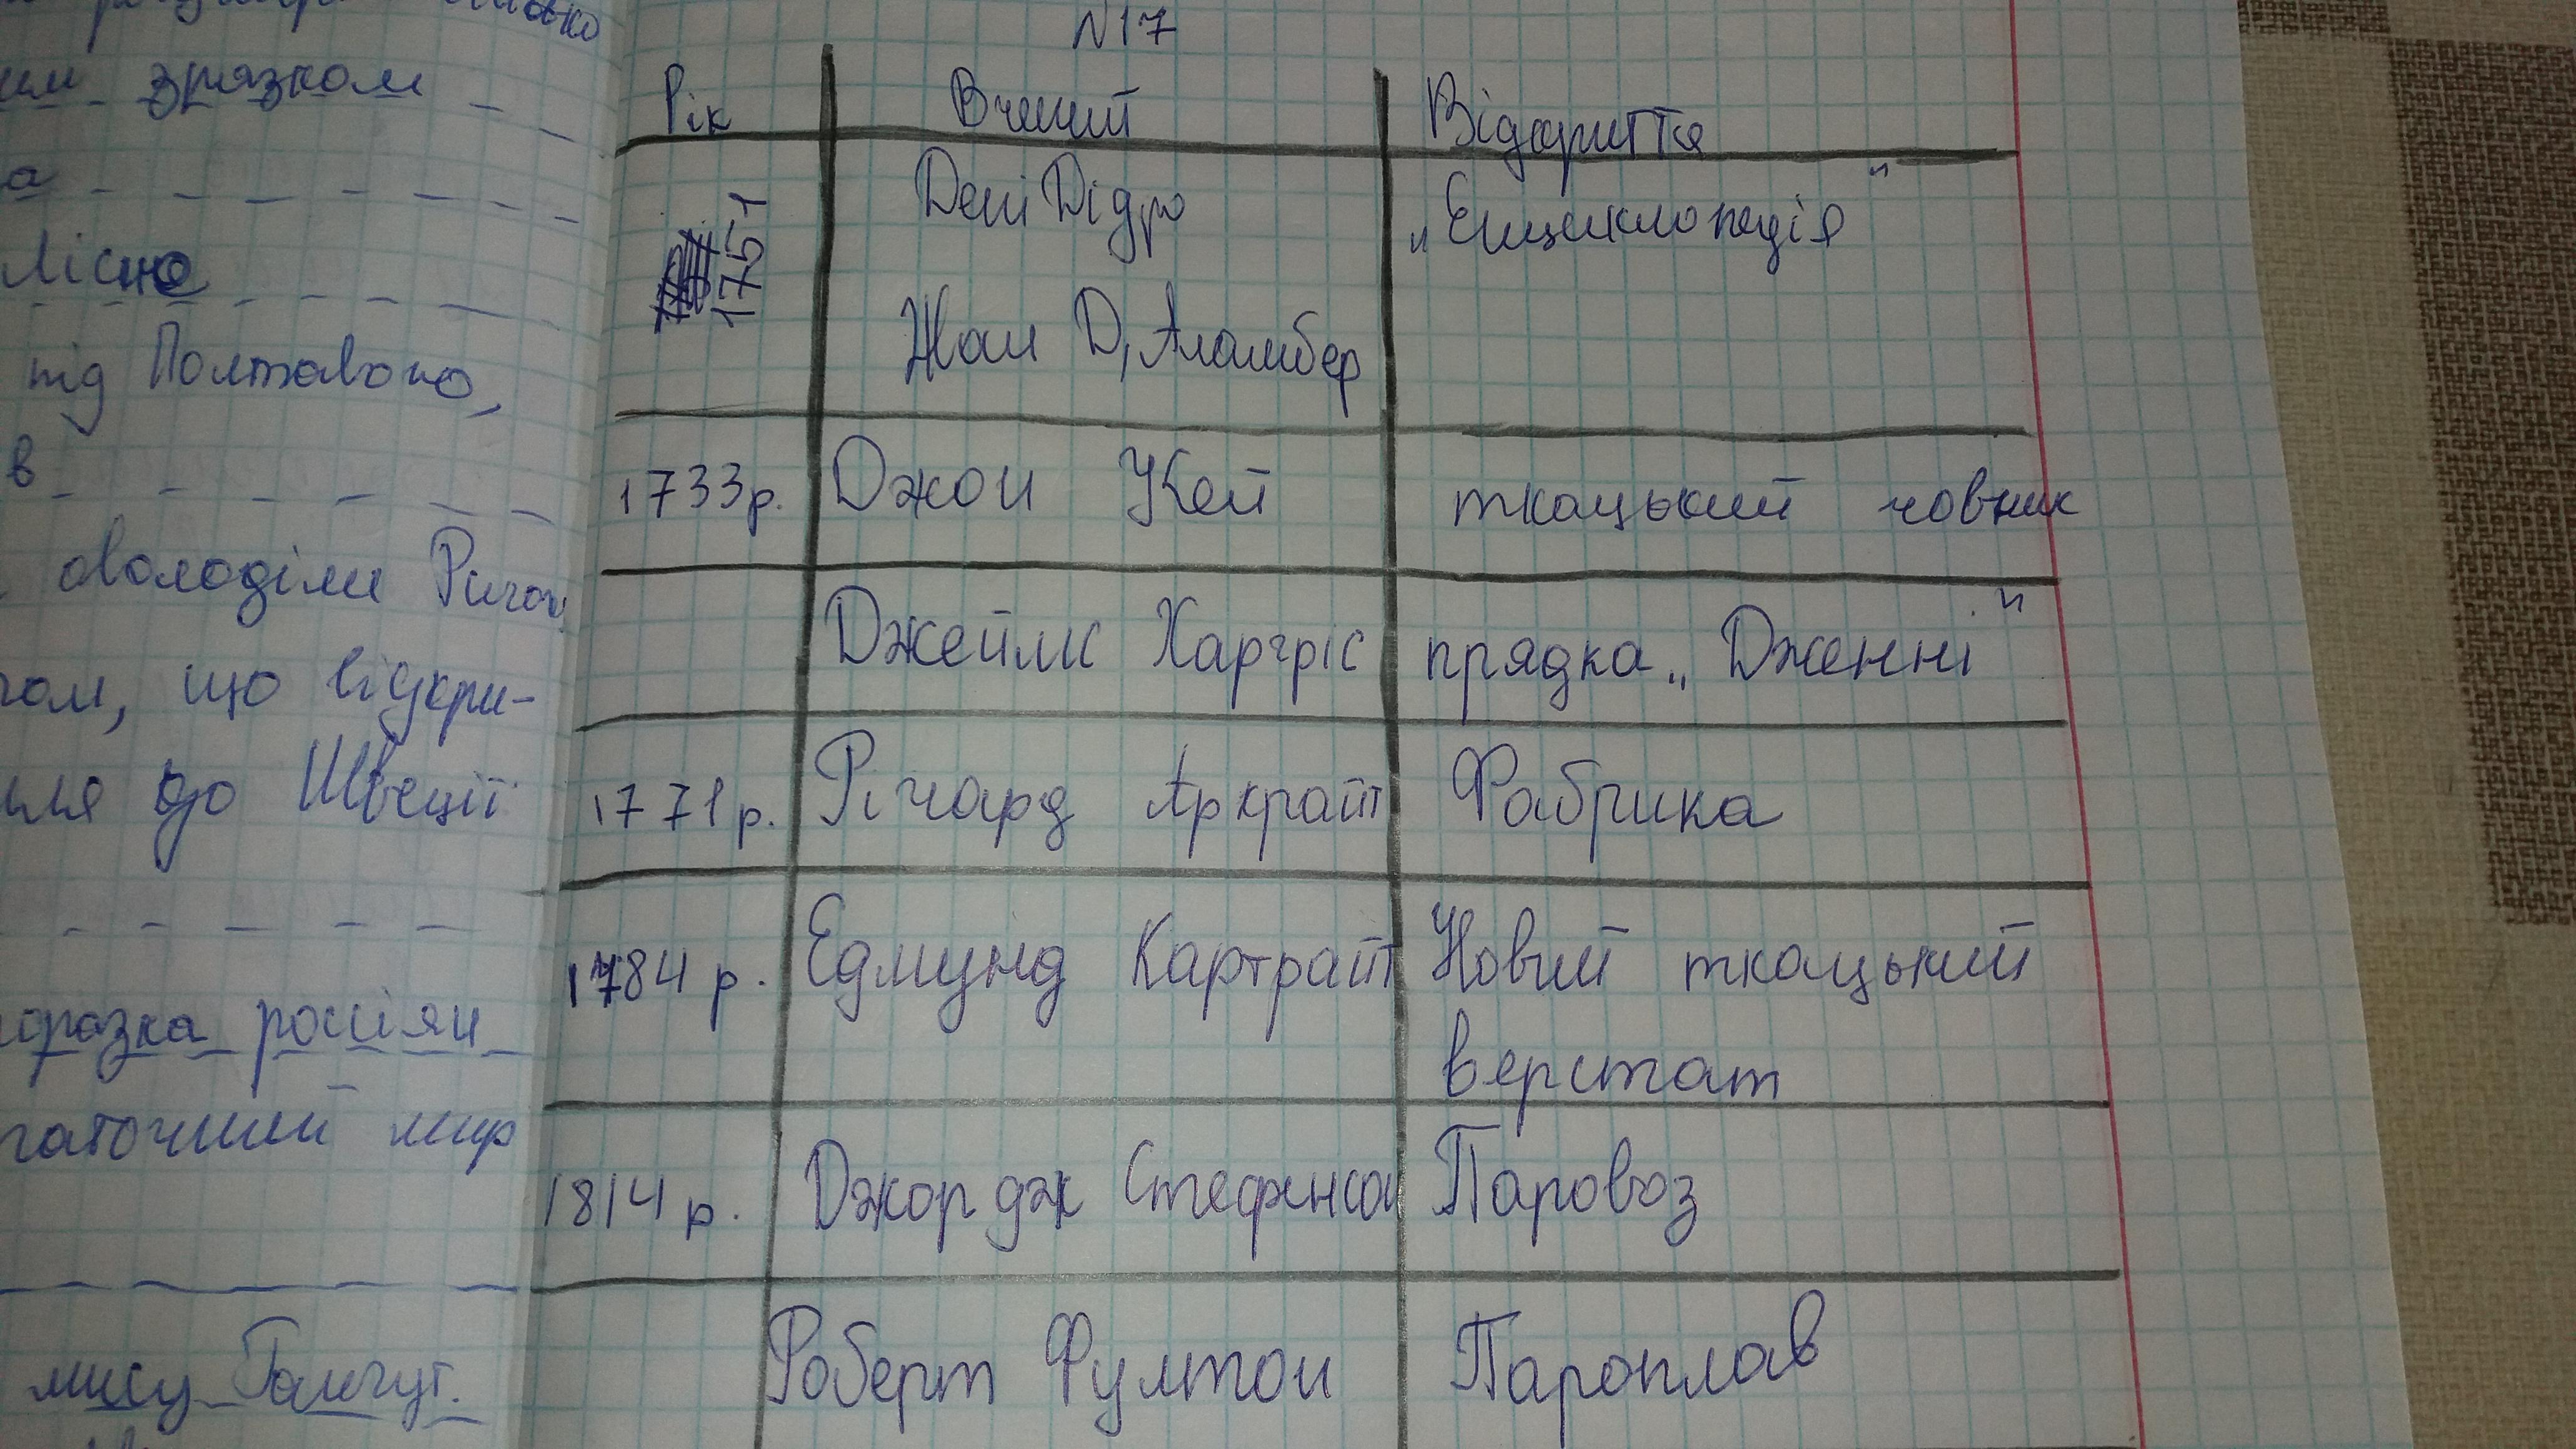 зразком
а
Лісне
під Полтавою,
в
оволоділи Ригою,
що відкри-
до Швеції
росіян
мир
мису Гангут.
N17
Рік Вчений Відкриття
1751 Дені Дідро „Енциклопедія"
Жан Д,Аламбер
1733р. Джон Кей ткацький човник
Джеймс Харгріс прядка „Дженні"
1771р. Річард Аркрайт Фабрика
1784 р. Едмунд Картрайт Новий ткацький
верстат
1814 р. Джордж Стефенсон Паровоз
Роберт Фултон Пароплав